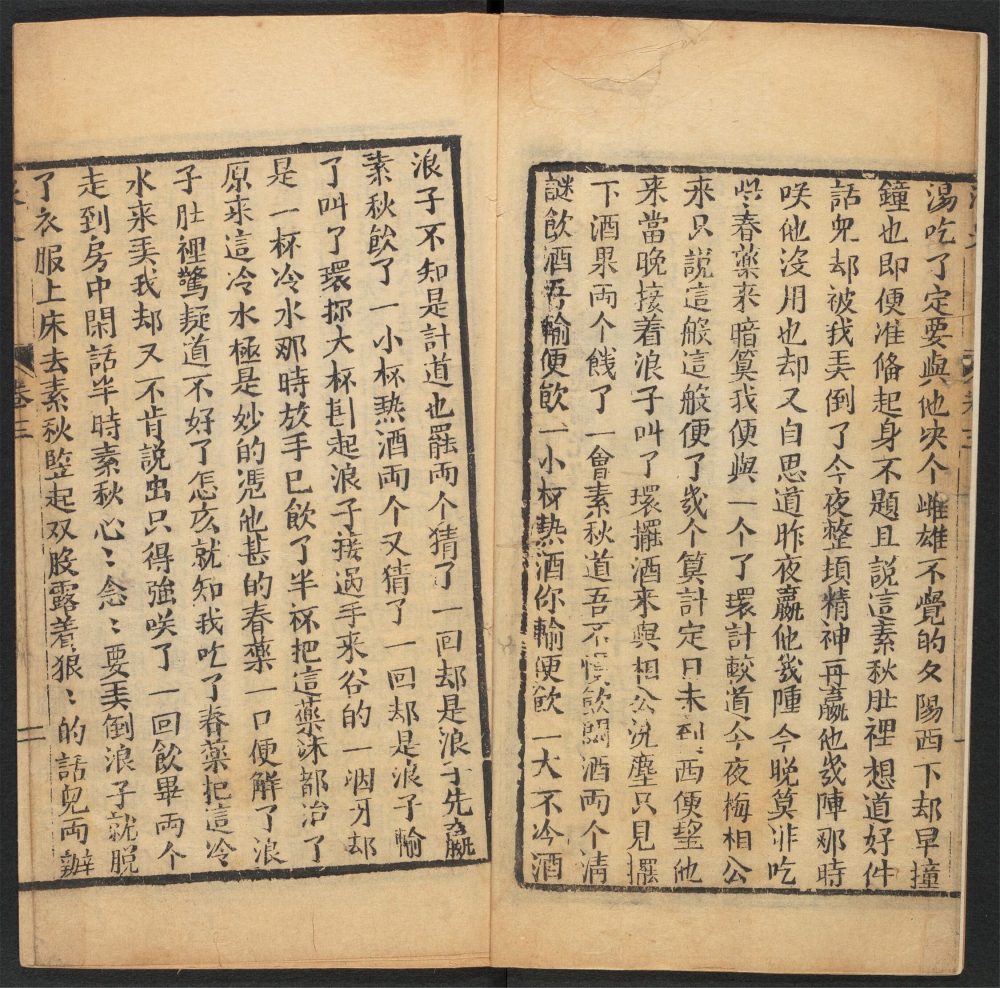 湯吃了定要與他决个雌雄不覺的夕陽西下却早撞
鐘也即便准俻起身不題且說這素秋肚裡想道好件
話兒却被我弄倒了今夜整頓精神再贏他㡬陣那時
咲他沒用也却又自思道昨夜贏他㡬陣今晚算計吃
些春藥来暗算我便與一个了環計較道今夜梅相公
來只說這般這般便了㡬个算計定日未到西便望他
来當晚接着浪子叫了環擺酒来與相公洗塵只見擺
下酒果两个餞了一會素秋道吾不慣飲悶酒两个淸
謎飲酒吾輸便飲一小杯熱酒你輸便飲一大不冷酒
浪子不知是計道也罷两个猜了一回却是浪子先贏
素秋飲了一小杯熱酒两个又猜了一回却是浪子輸
了叫了環探大杯斟起浪子接過手来谷的一咽牙却
是一杯冷水那時放手已飲了半杯把這藥沬都治了
原来這冷水極是妙的凴他甚的春藥一口便解了浪
子肚裡驚疑道不好了怎広就知我吃了春藥把這冷
水来弄我却又不肯說出只得強咲了一回飲畢两个
走到房中閑話半時素秋心〻念〻要弄倒浪子就脱
了衣服上床去素秋竪起双股露着狠〻的話兒两辦
卷三
二